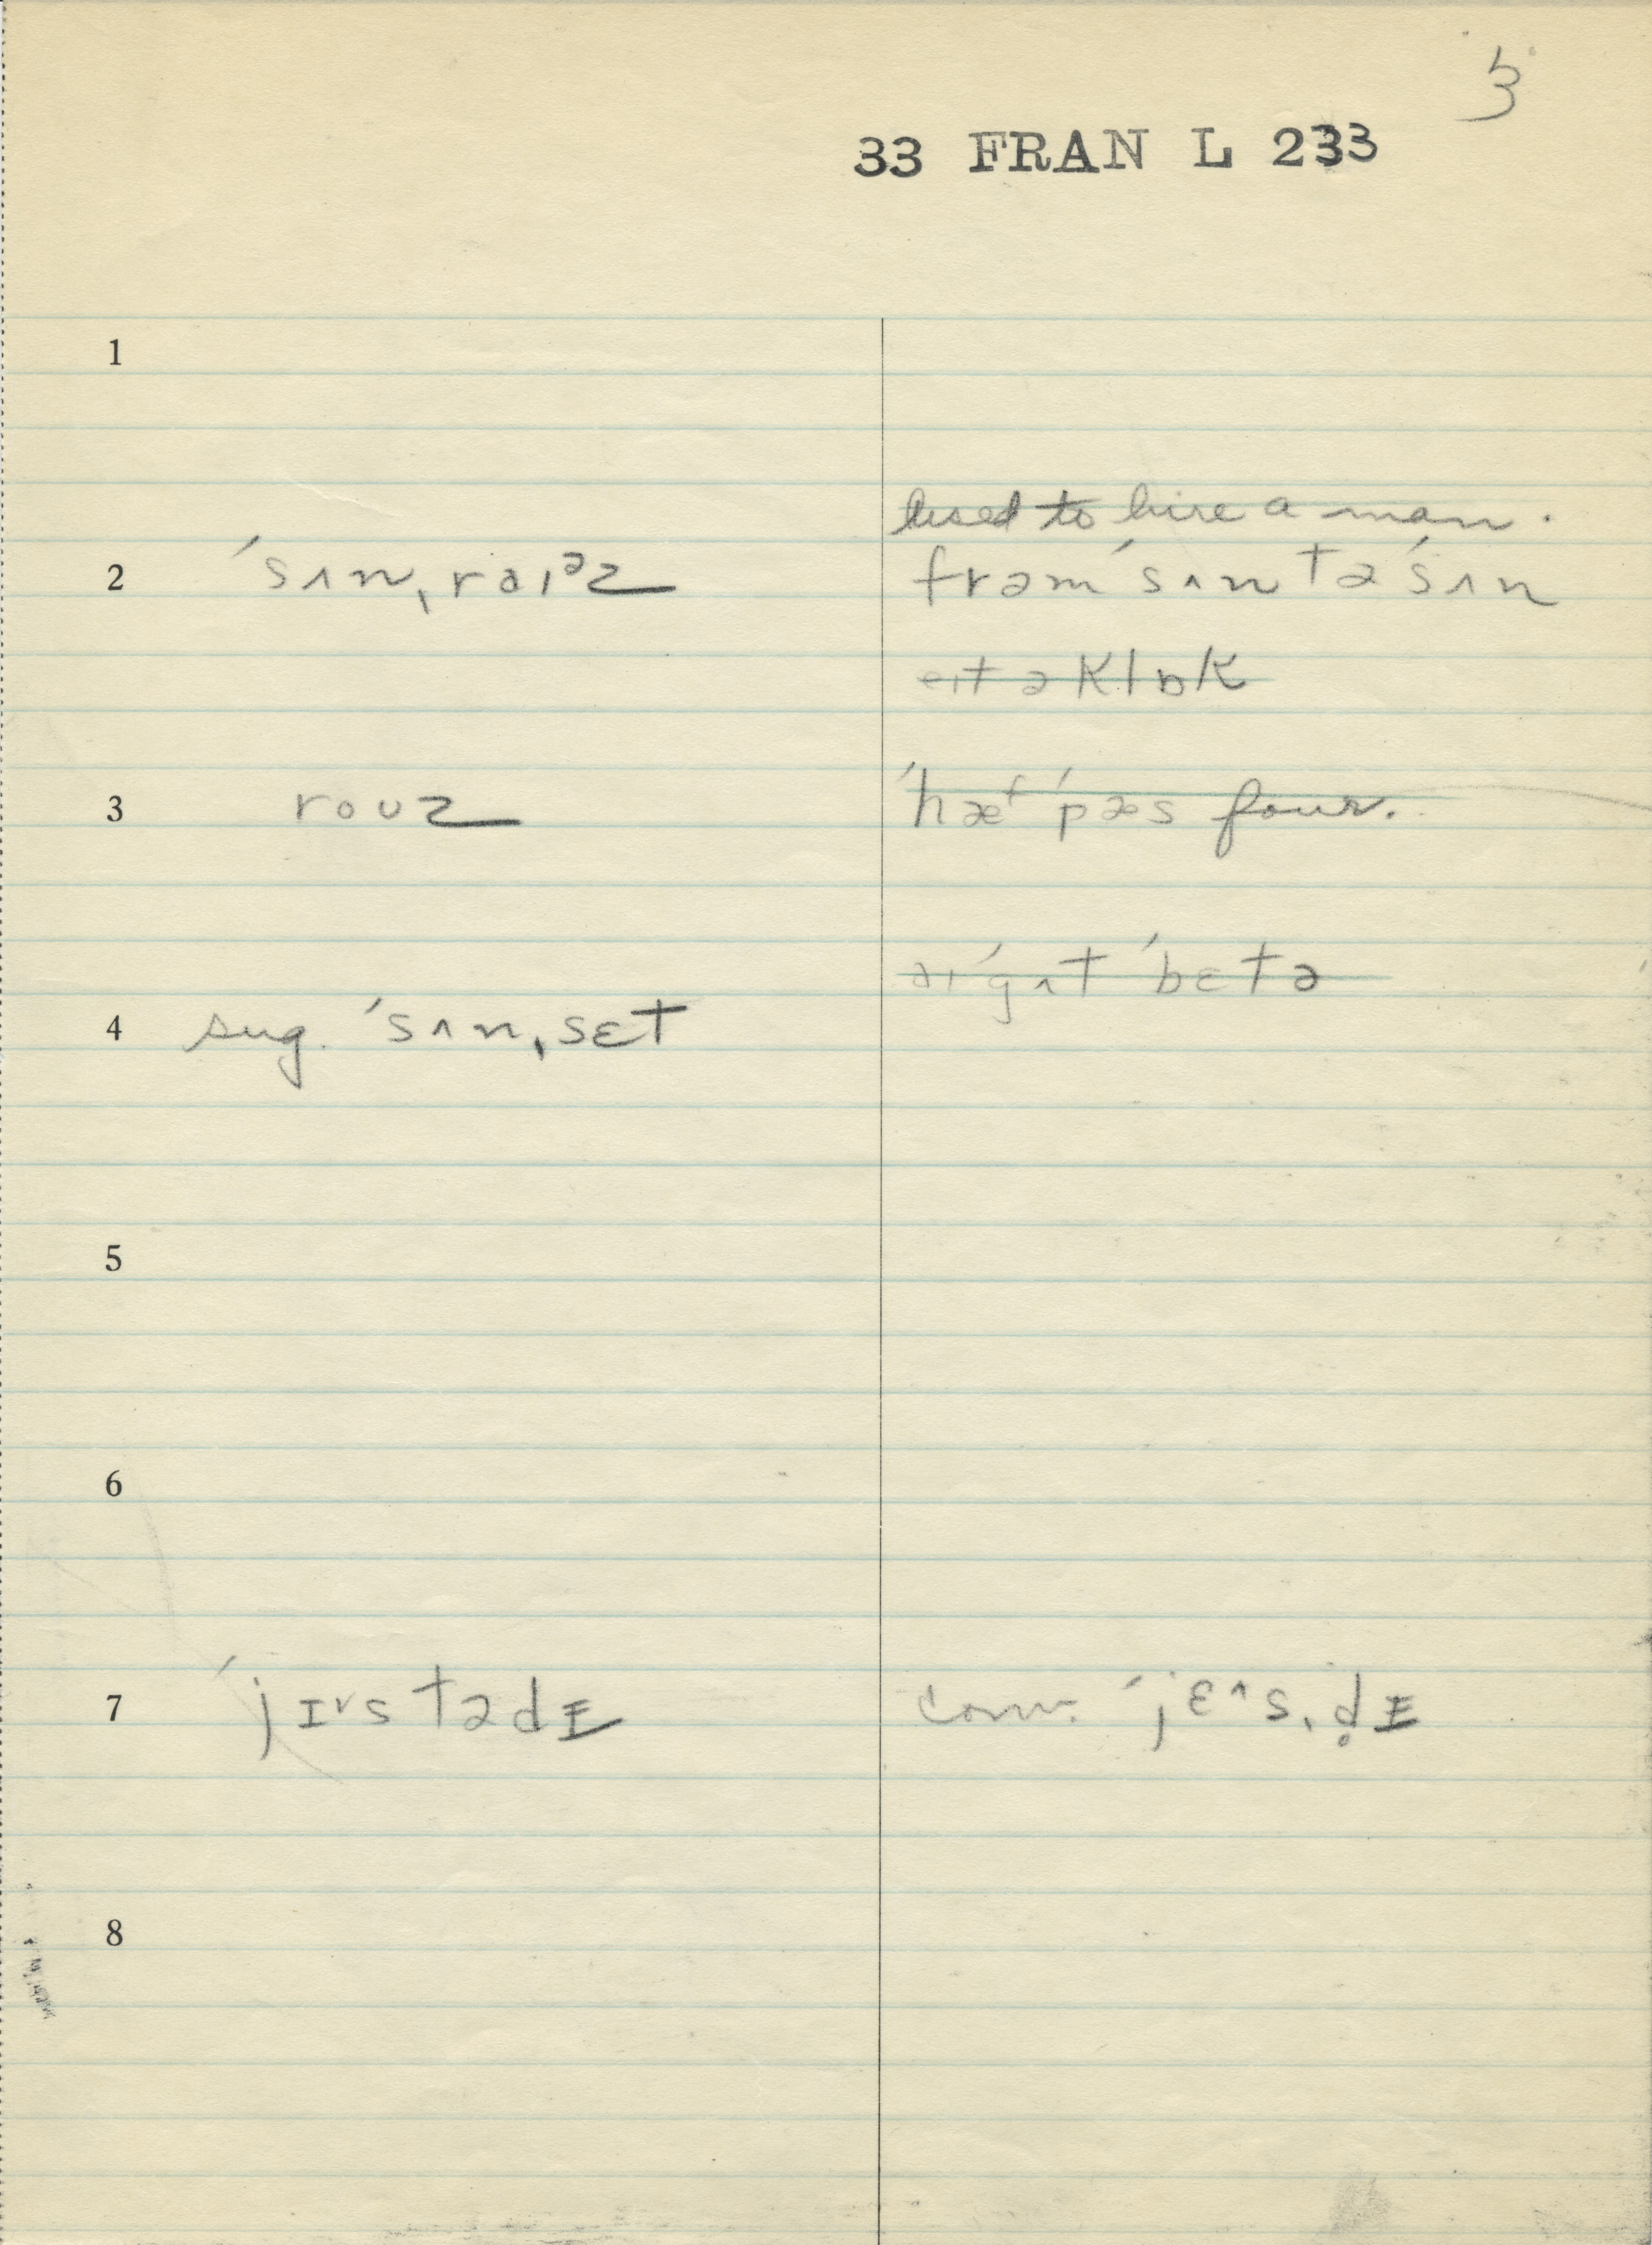 3
33 FRAN L 233
1
used to hire a man.
2 ˈsʌnˌraɪᵊz frəm ˈsʌn tə ˈsʌn
eɪt əklɒk
3 roʊz ˈhæᶠ ˈpæs four.
aɪ ˈgʌt ˈbɛtə
4 sug. ˈsʌnˌsɛt
5
6
7 ˈjɪ˅stədɪ conv. ˈjɛ^sˌd̥ɪ
8